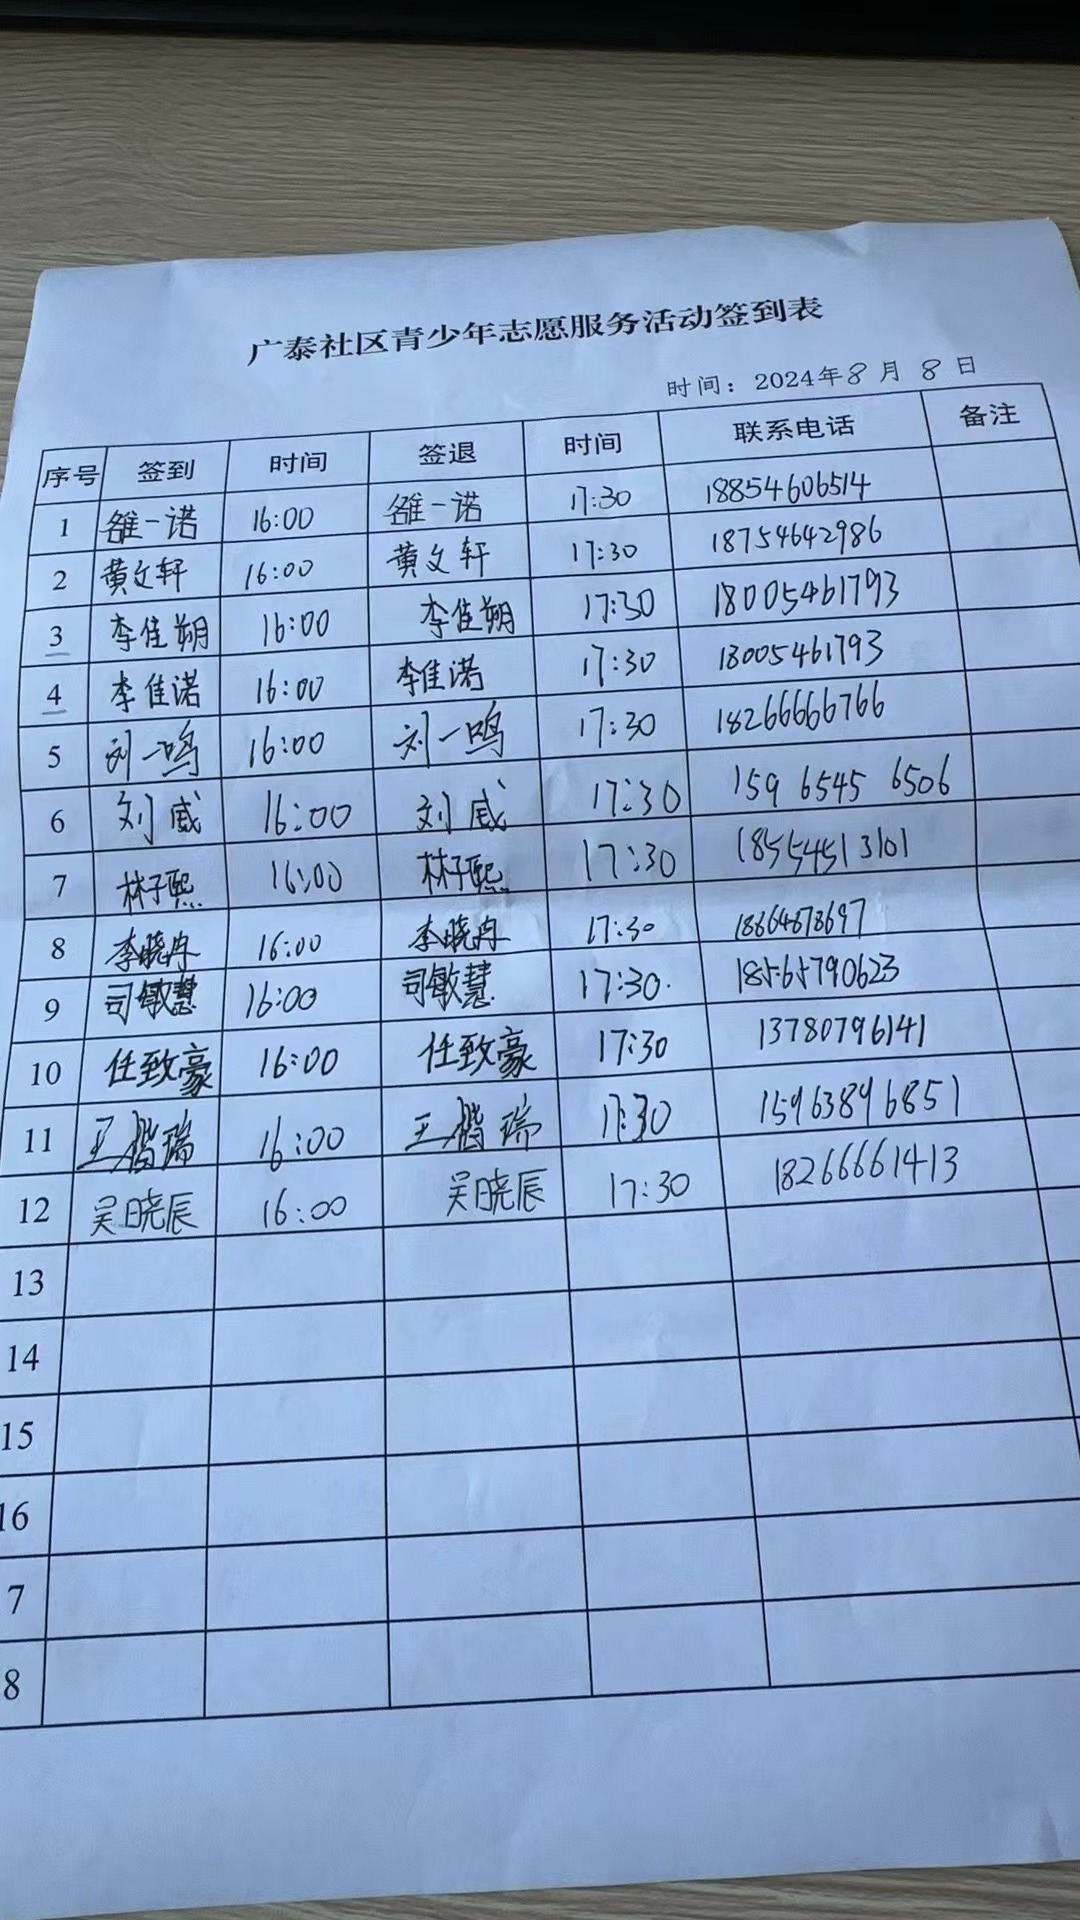 广泰社区青少年志愿服务活动签到表
时间：2024年8月8日
序号 签到 时间 签退 时间 联系电话 备注
1 雒一诺 16:00 雒一诺 17:30 18854606514
2 黄文轩 16:00 黄文轩 17:30 18754642986
3 李佳朔 16:00 李佳朔 17:30 18005461793
4 李佳诺 16:00 李佳诺 17:30 18005461793
5 刘一鸣 16:00 刘一鸣 17:30 18266666766
6 刘威 16:00 刘威 17:30 159 6545 6506
7 林子熙 16:00 林子熙 17:30 18554513101
8 李晓丹 16:00 李晓丹 17:30
9 司敏慧 16:00 司敏慧 17:30. 18565790623
10 任致豪 16:00 任致豪 17:30 13780796141
11 王楷瑞 16:00 王楷瑞 17:30 15963896851
12 吴晓辰 16:00 吴晓辰 17:30 18266661413
13
14
15
16
7
8